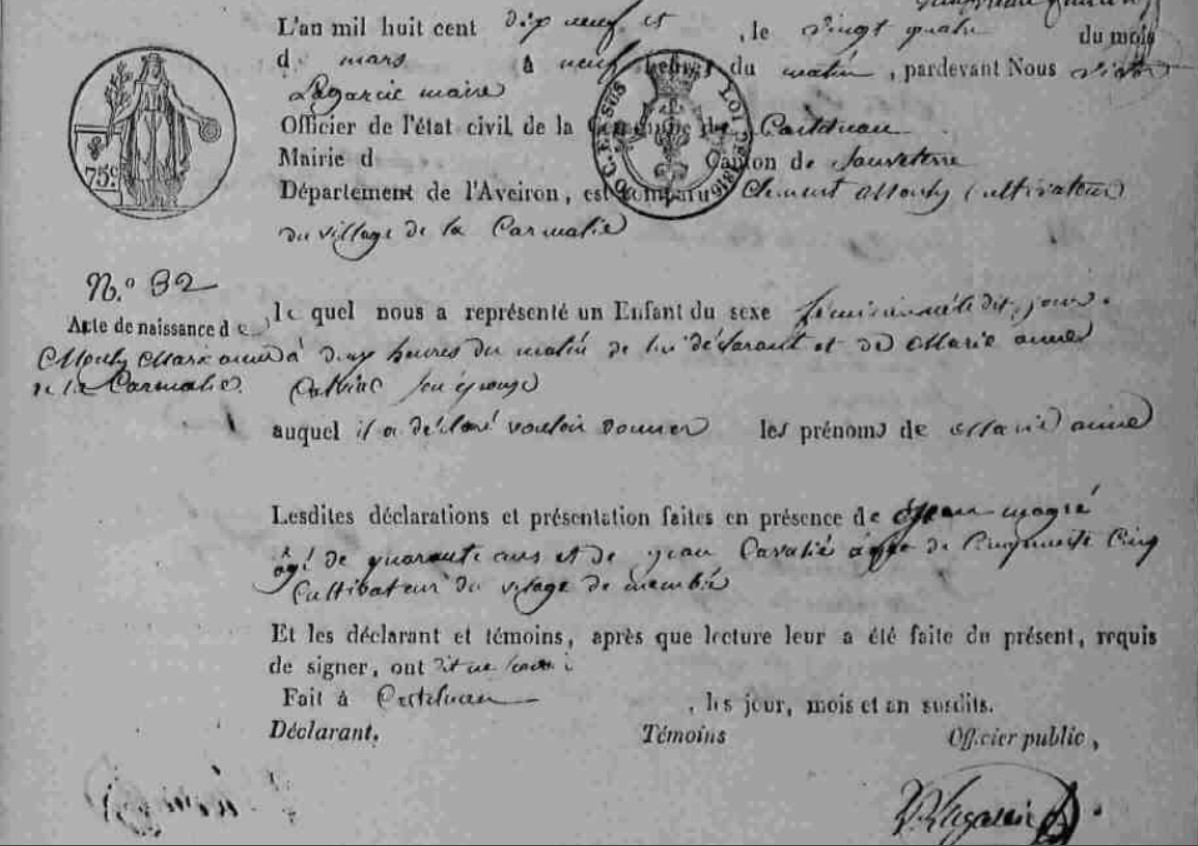 L'an mil huit cent dix neuf et , le vingt quatre du mois
d mars à neuf heures du matin , pardevant Nous victor
Lagarrie maire
Officier de l'état civil de la Commune de Castelnau
Mairie d Canton de Sauveterre
Département de l'Aveiron, est comparu Clement Mouly Cultivateur
du village de la Carmalie
75c.
C. EN SUS LOI DE 1816
N.o 32
Acte de naissance de
Mouly Marianne
de la Carmalie.
le quel nous a représenté un Enfant du sexe féminin né le dit jour.
à deux heures du matin de lui déclarant et de Marie anne
son épouse
auquel il a déclaré vouloir donner les prénoms de Marie anne
Lesdites déclarations et présentation faites en présence de Jean magré
agé de quarante ans et de jean Cavalié agé de Cinquante Cinq
Cultibateur du vilage de
Et les déclarant et témoins, après que lecture leur a été faite du présent, requis
de signer, ont dit ne savoir
Fait à Castelnau , les jour, mois et an susdits.
Déclarant, Témoins Officier public,